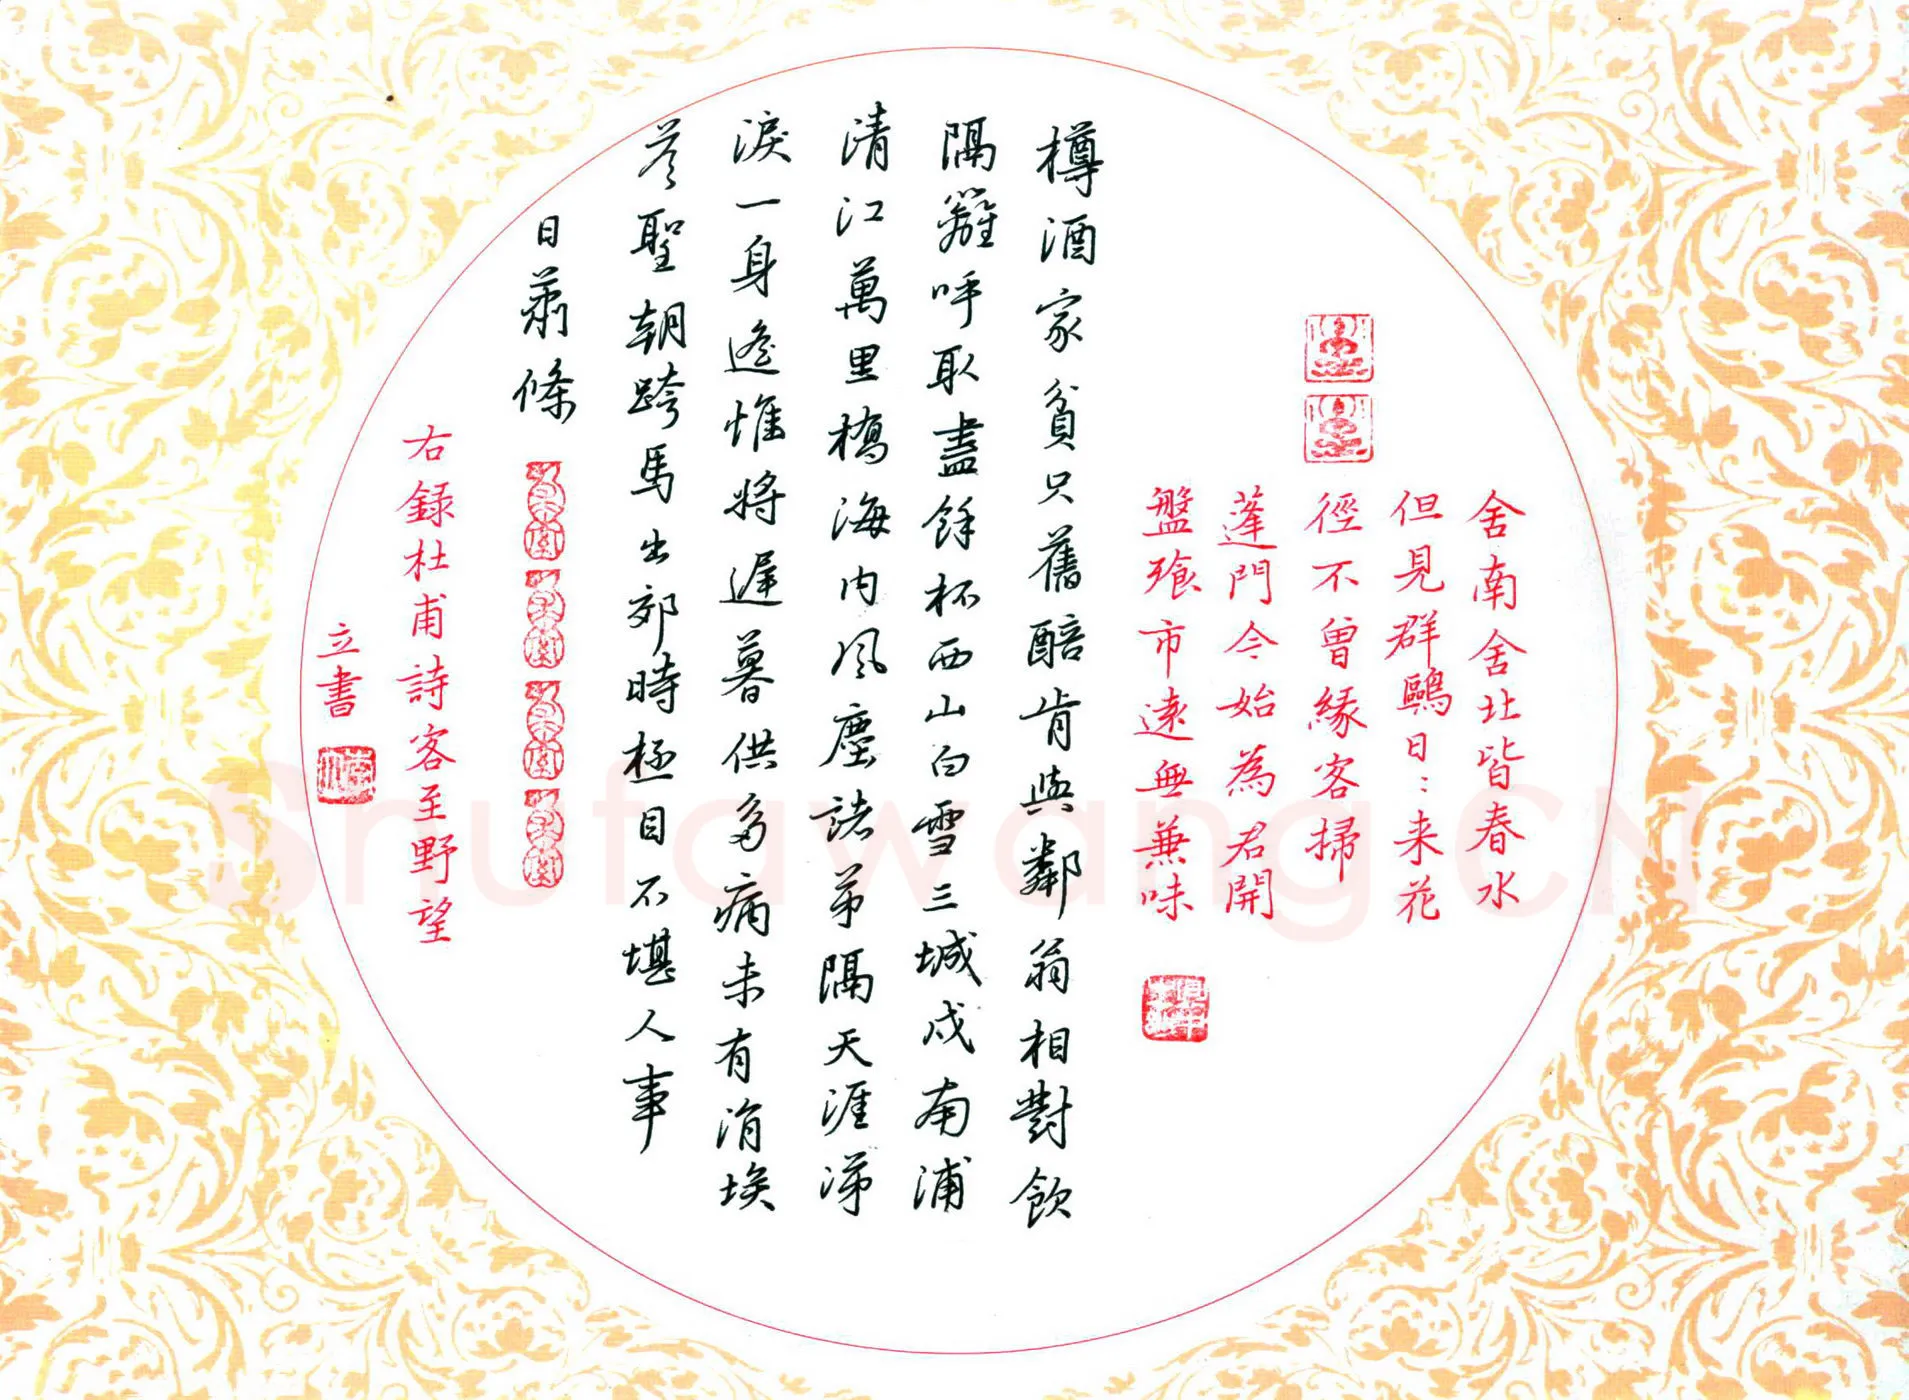 舍南舍北皆春水
但見群鷗日〻来花
徑不曾緣客掃
蓬門今始為君開
盤飧市遠無兼味
樽酒家貧只舊醅肯與鄰翁相對飲
隔籬呼取盡餘杯西山白雪三城戍南浦
清江萬里橋海內風塵諸弟隔天涯涕
淚一身遙惟將遲暮供多病未有涓埃
荅聖朝跨馬出郊時極目不堪人事
日蕭條
右録杜甫詩客至野望
立書
Shufawang.CN